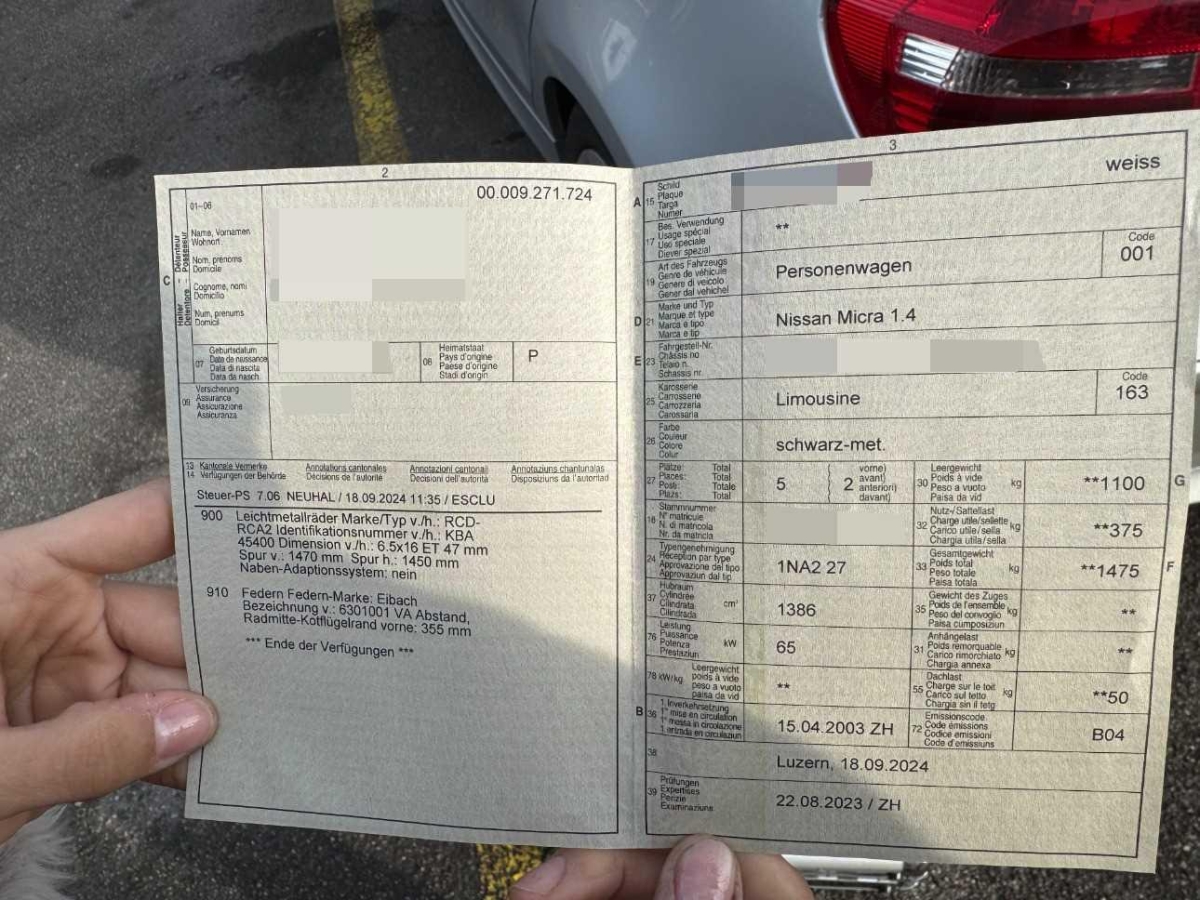 2
00.009.271.724
01-06
Name, Vornamen
Wohnort
Nom, prénoms
Domicile
Cognome, nomi
Domicilio
Num, prenums
Domicil
C
Halter – Détenteur
Detentore – Possessur
07
Geburtsdatum
Date de naissance
Data di nascita
Data da nasch.
08
Heimatstaat
Pays d'origine
Paese d'origine
Stadi d'origin
P
09
Versicherung
Assurance
Assicurazione
Assicuranza
13
14
Kantonale Vermerke
Verfügungen der Behörde
Annotations cantonales
Décisions de l'autorité
Annotazioni cantonali
Decisioni dell'autorità
Annotaziuns chantunalas
Disposiziuns da l'autoritad
Steuer-PS 7.06 NEUHAL / 18.09.2024 11:35 / ESCLU
900 Leichtmetallräder Marke/Typ v./h.: RCD-
RCA2 Identifikationsnummer v./h.: KBA
45400 Dimension v./h.: 6.5x16 ET 47 mm
Spur v.: 1470 mm Spur h.: 1450 mm
Naben-Adaptionssystem: nein
910 Federn Federn-Marke: Eibach
Bezeichnung v.: 6301001 VA Abstand,
Radmitte-Kotflügelrand vorne: 355 mm
*** Ende der Verfügungen ***
3
A 15
Schild
Plaque
Targa
Numer
weiss
17
Bes. Verwendung
Usage spécial
Uso speciale
Diever spezial
**
19
Art des Fahrzeugs
Genre de véhicule
Genere di veicolo
Gener dal vehichel
Personenwagen
Code
001
D 21
Marke und Typ
Marque et type
Marca e tipo
Marca e tip
Nissan Micra 1.4
E 23
Fahrgestell-Nr.
Châssis no
Telaio n.
Schassis nr.
25
Karosserie
Carrosserie
Carrozzeria
Carossaria
Limousine
Code
163
26
Farbe
Couleur
Colore
Colur
schwarz-met.
27
Plätze: Total
Places: Total
Posti: Totale
Plazs: Total
5
2
vorne)
avant)
anteriori)
davant)
30
Leergewicht
Poids à vide
Peso a vuoto
Paisa da vid
kg
**1100
G
18
Stammnummer
N° matricule
N. di matricola
Nr. da matricla
32
Nutz-/Sattellast
Charge utile/sellette
Carico utile/sella
Chargia utila/sella
kg
**375
24
Typengenehmigung
Réception par type
Approvazione del tipo
Approvaziun dal tip
1NA2 27
33
Gesamtgewicht
Poids total
Peso totale
Paisa totala
kg
**1475
F
37
Hubraum
Cylindrée
Cilindrata
Cilindrada
cm³
1386
35
Gewicht des Zuges
Poids de l'ensemble
Peso del convoglio
Paisa cumposiziun
kg
**
76
Leistung
Puissance
Potenza
Prestaziun
kW
65
31
Anhängelast
Poids remorquable
Carico rimorchiato
Chargia annexa
kg
**
78 kW/kg
Leergewicht
poids à vide
peso a vuoto
paisa da vid
**
55
Dachlast
Charge sur le toit
Carico sul tetto
Chargia sin il tetg
kg
**50
B 36
1. Inverkehrsetzung
1re mise en circulation
1a messa in circolazione
1. entrada en circulaziun
15.04.2003 ZH
72
Emissionscode
Code émissions
Codice emissioni
Code d'emissiuns
B04
38
Luzern, 18.09.2024
39
Prüfungen
Expertises
Perizie
Examinaziuns
22.08.2023 / ZH